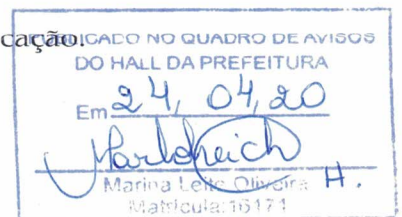 cação.
PUBLICADO NO QUADRO DE AVISOS
DO HALL DA PREFEITURA
Em 24, 04, 20
Marina Leite Oliveira H.
Matrícula:16171